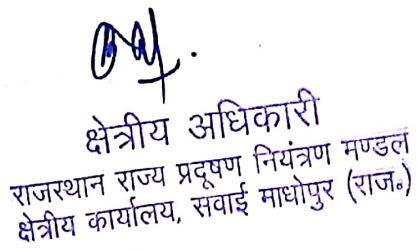 क्षेत्रीय अधिकारी
राजस्थान राज्य प्रदूषण नियंत्रण मण्डल
क्षेत्रीय कार्यालय, सवाई माधोपुर (राज॰)